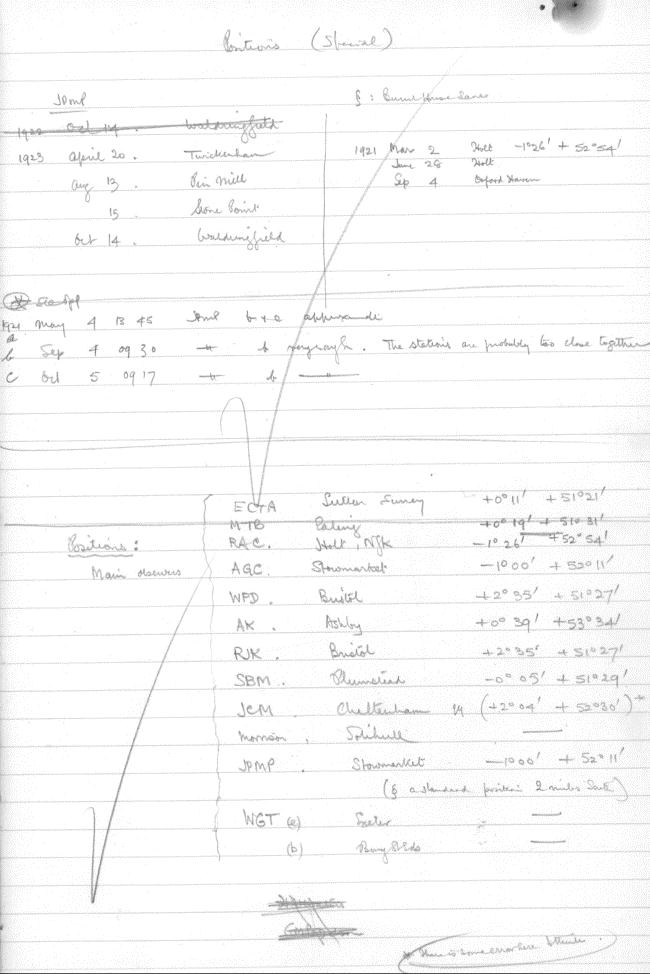 Positions (Special)
JPMP
1922 Oct 14. Waldringfield
1923 April 20. Twickenham
Aug 13 Pin Mill
15 Stone Point
Oct 14. Waldringfield
§ :
1921 Mar 2 Holt -1°26' + 52°54'
June 28 Holt
Sep 4 Orford Haven
1921
a May 4 13 45 JPMP b & c
b Sep 4 09 30 " b . The stations are probably too close together
c Oct 5 09 17 " b "
Positions:
Main observers
Sutton Surrey +0°11' +51°21'
MTB Ealing +0°19' +51°31'
RAC. Holt, Nfk -1°26' +52°54'
AGC. Stowmarket -1°00' +52°11'
WFD. Bristol +2°35' +51°27'
AK. Ashby +0°39' +53°34'
RJK. Bristol +2°35' +51°27'
SBM. Plumstead -0°05' +51°29'
JCM. Cheltenham (+2°04' +52°30')*
Morrison, Solihull —
JPMP. Stowmarket -1°00' +52°11'
(§ a standard position 2 miles South)
WGT (a) Exeter —
(b) Bury St Eds —
* There is some error here I think.